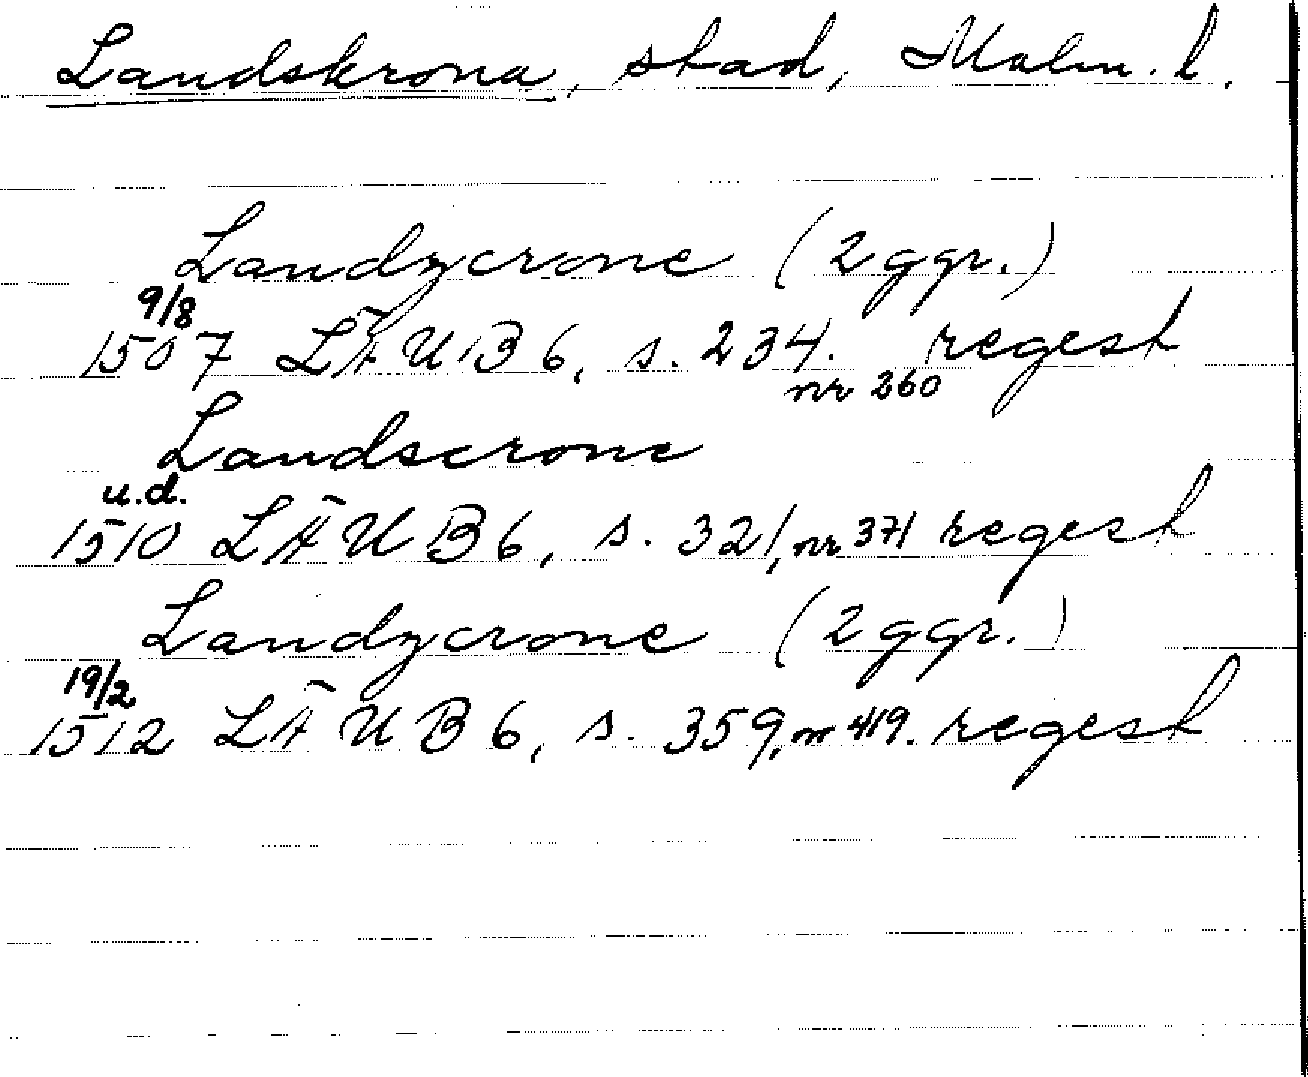 Landskrona, stad, Malm. l.
Landzcrone (2 ggr.)
9/8
1507 LÄUB 6, s. 234. regest
nr 260
Landscrone
u.d.
1510 LÄUB 6, s. 321, nr 371 regest
Landzcrone (2 ggr.)
19/2
1512 LÄUB 6, s. 359, nr 419. regest